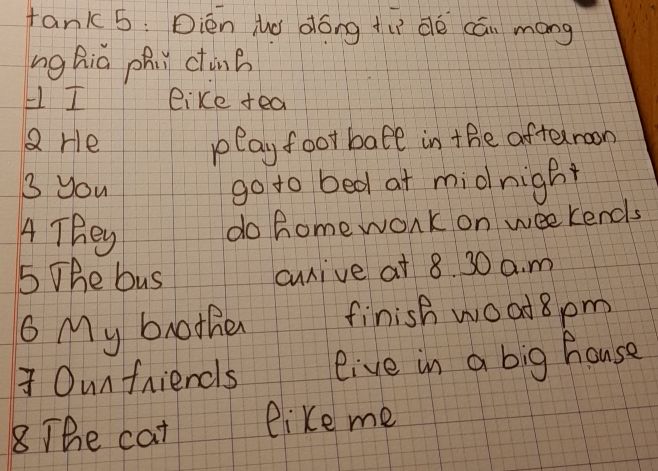 tank 5: Điền trợ động từ để câu mang
nghĩa phủ định
1 I like tea
2 He play football in the afternoon
3 you go to bed at midnight
4 They do homework on weekends
5 The bus arrive at 8.30 a.m
6 My brother finish wo at 8 pm
7 Our friends live in a big house
8 The cat like me